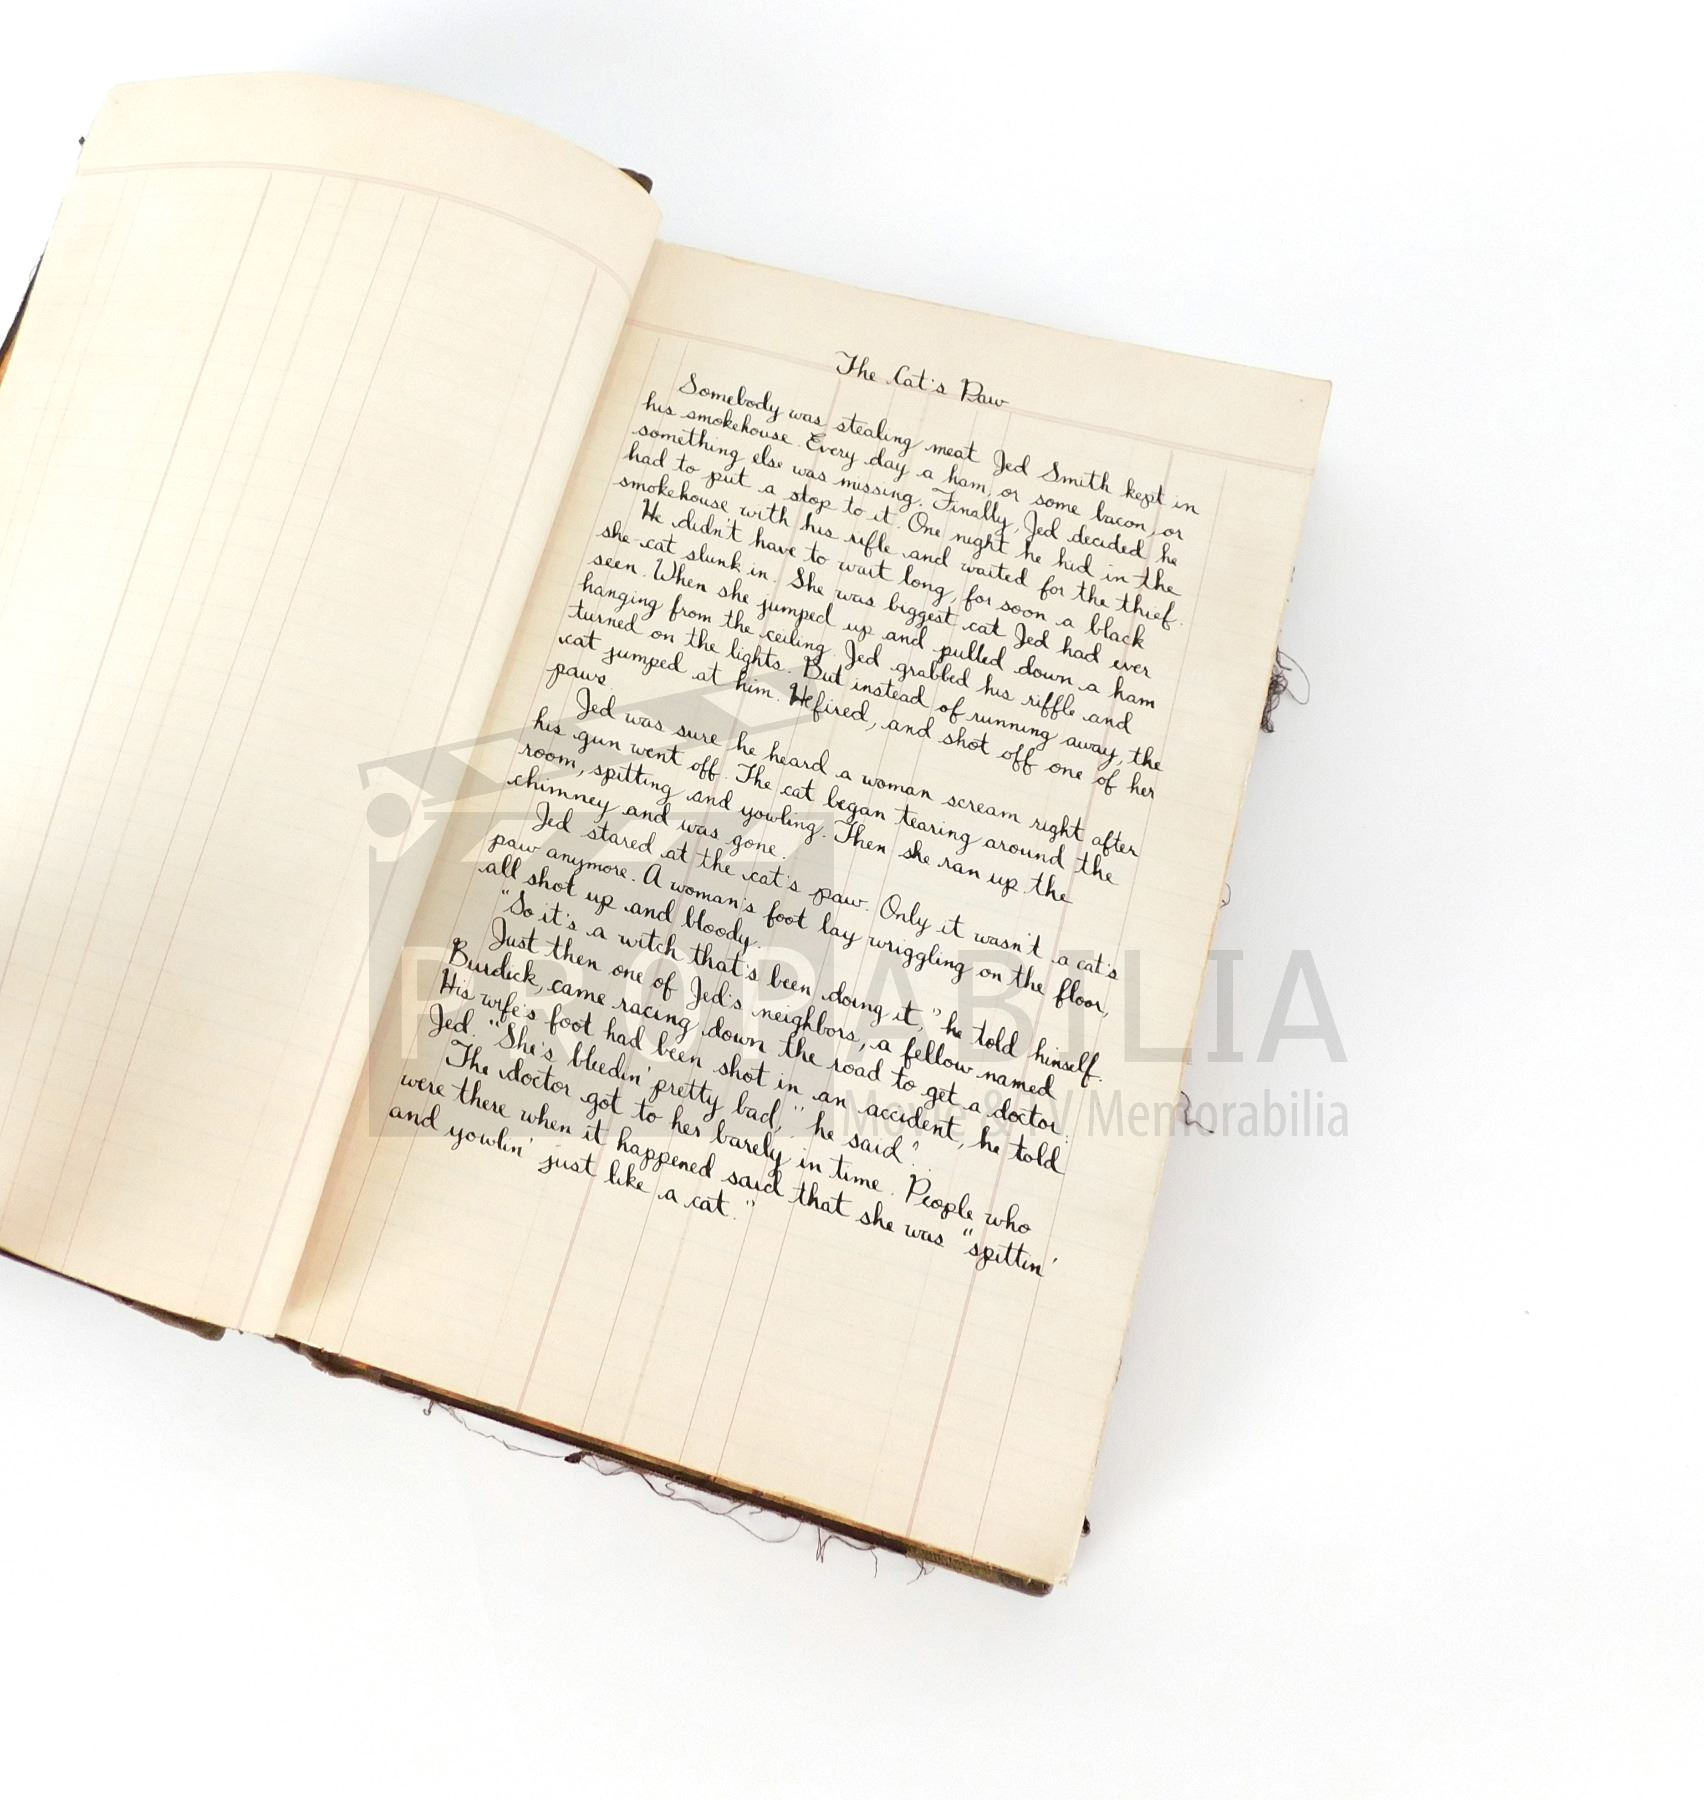 The Cat's Paw
Somebody was stealing meat Jed Smith kept in
his smokehouse. Every day a ham, or some bacon, or
something else was missing. Finally, Jed decided he
had to put a stop to it. One night he hid in the
smokehouse with his rifle and waited for the thief.
He didn't have to wait long, for soon a black
she-cat slunk in. She was biggest cat Jed had ever
seen. When she jumped up and pulled down a ham
hanging from the ceiling. Jed grabbed his riffle and
turned on the lights. But instead of running away, the
cat jumped at him. He fired, and shot off one of her
paws.
Jed was sure he heard a woman scream right after
his gun went off. The cat began tearing around the
room, spitting and yowling. Then she ran up the
chimney and was gone.
Jed stared at the cat's paw. Only it wasn't a cat's
paw anymore. A woman's foot lay wriggling on the floor,
all shot up and bloody.
"So it's a witch that's been doing it," he told himself.
Just then one of Jed's neighbors, a fellow named
Burdick, came racing down the road to get a doctor.
His wife's foot had been shot in an accident, he told
Jed. "She's bleedin' pretty bad," he said".
The doctor got to her barely in time. People who
were there when it happened said that she was "spittin'
and yowlin' just like a cat."
PROPABILIA
Movie & TV Memorabilia